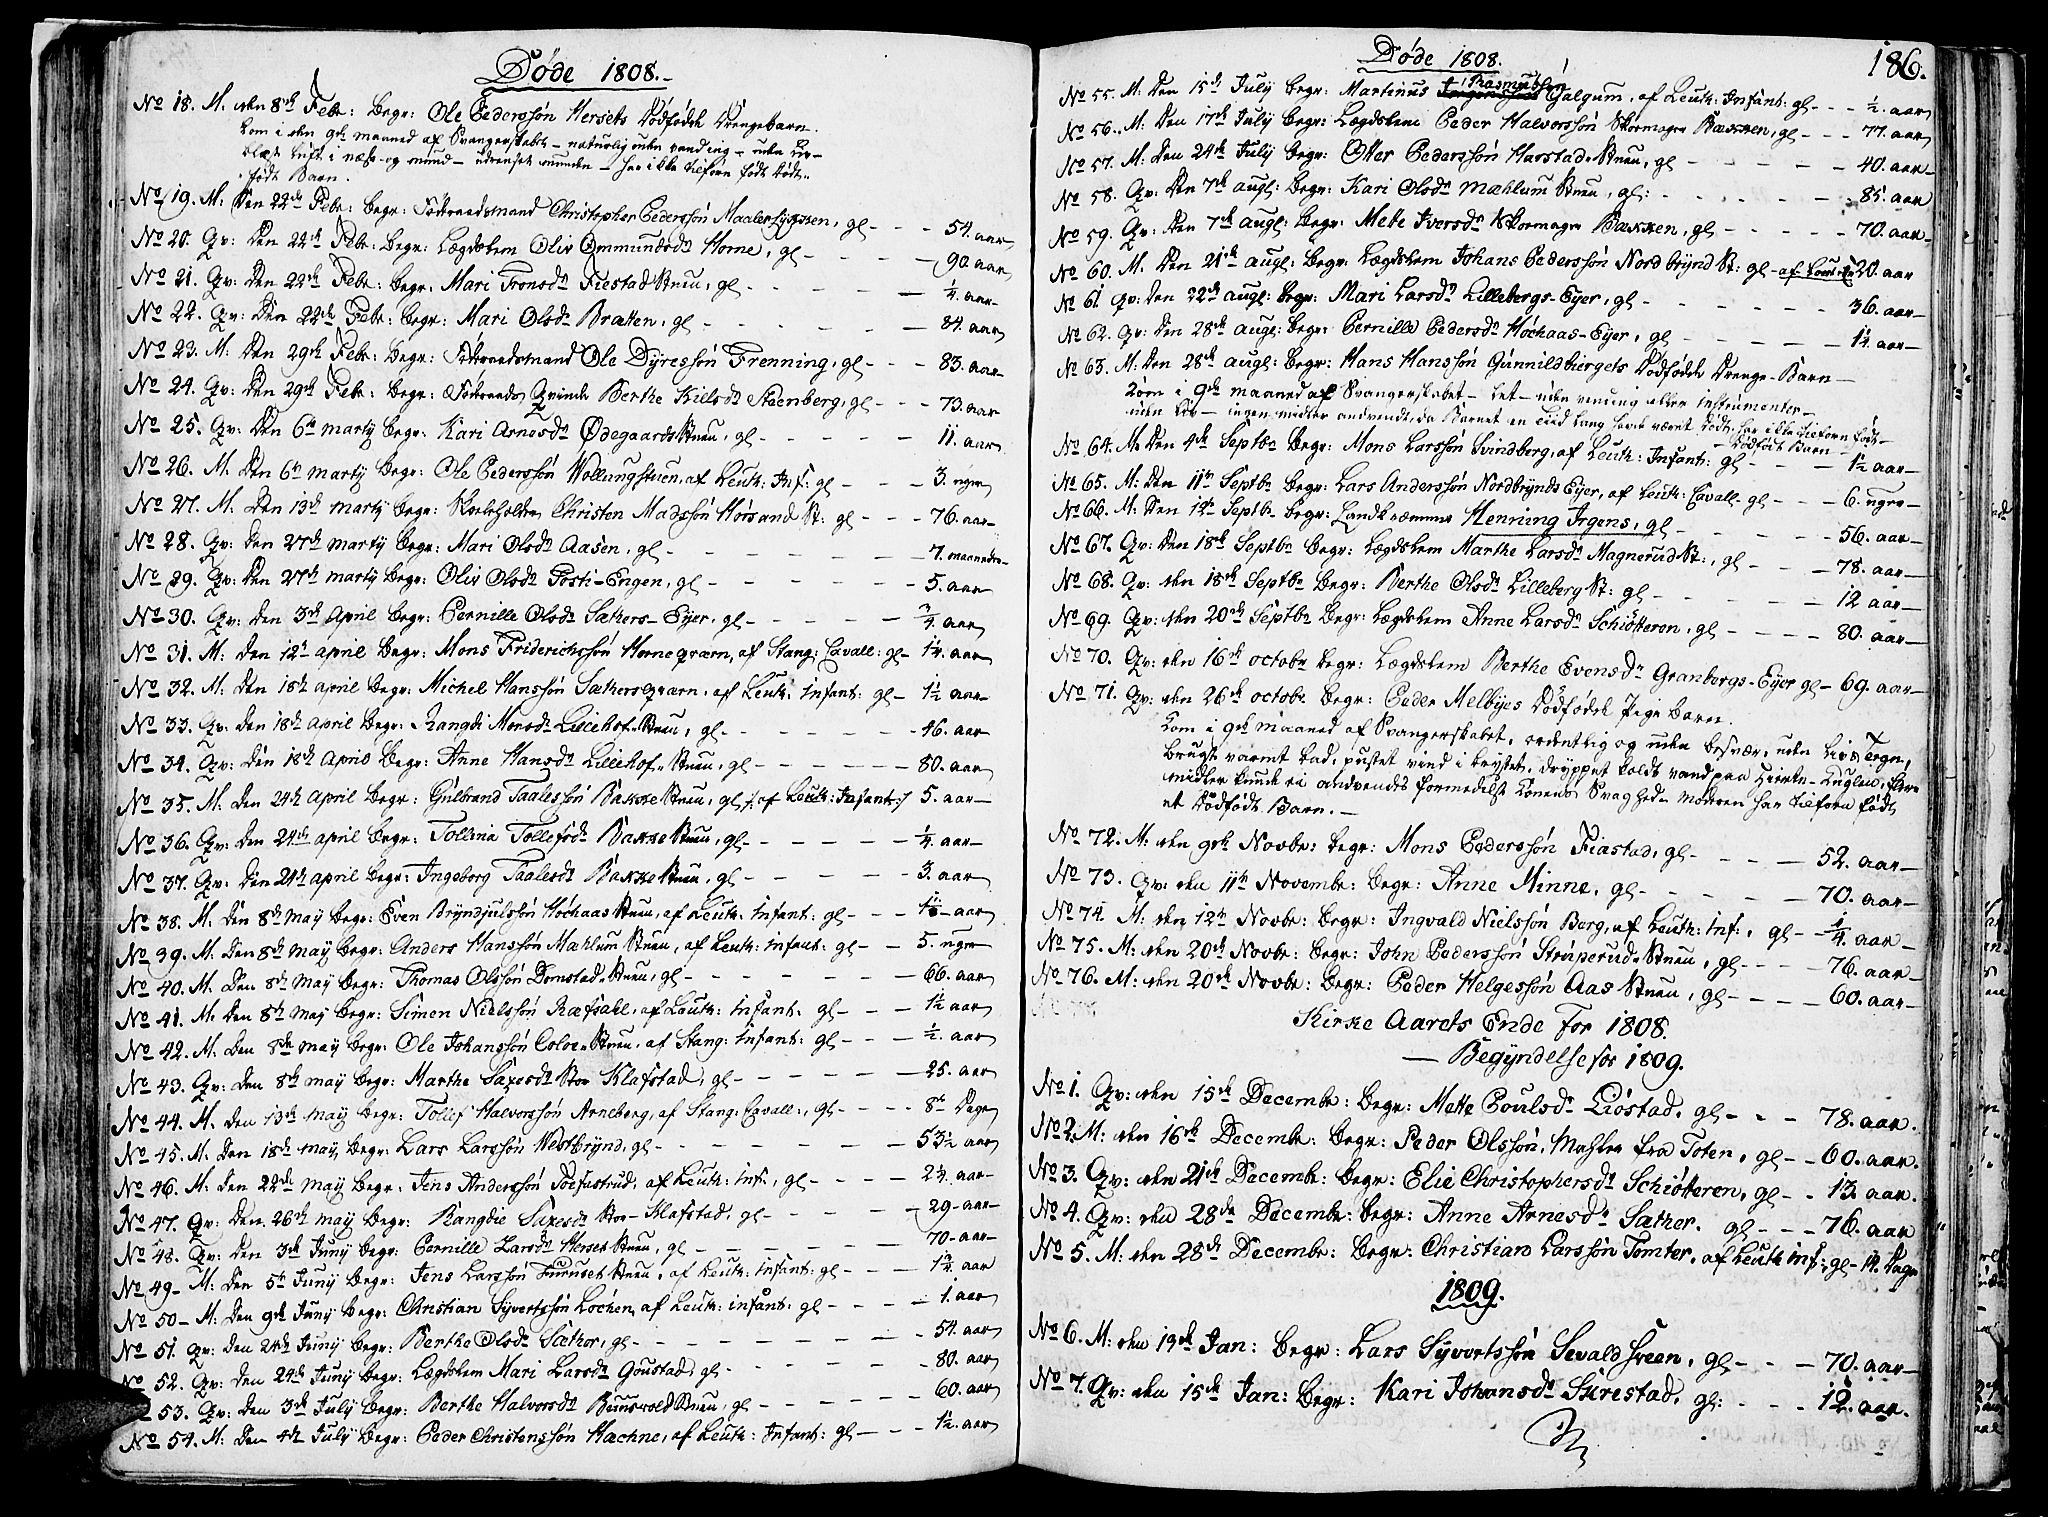 Døde 1808.
No 18. M. den 8de Febr: Begr: Ole Pederssön Hersets Dödfödde Drengebarn.
kom i den 9de maaned af Svangerskabet - naturlig uden vending - uden Liv -
blæst Luft i næse og mund - udrenset munden - har ikke tilforn födt Död-
födt Barn.
No 19. M: Den 22de Febr: Begr: Föderaadsmand Christopher Pederssön Maalerhyssen, gl - - - 54. aar
No 20. Qv: Den 22de Febr: Begr: Lægdslem Oliv Ommundsdr Horne, gl - - - 90 aar
No 21. Qv: Den 22de Febr: Begr: Mari Tronsdr Fiestad Stuen, gl - - - ¼. aar
No 22. Qv: Den 22de Febr: Begr: Mari Olsdr Bratten, gl - - - 84. aar
No 23. M: Den 29de Febr: Begr: Föderaadsmand Ole Dyressön Frenning, gl - - - 83. aar
No 24. Qv: Den 29de Febr: Begr: Föderaads Qvinde Berthe Kielsdr Steenberg, gl - - - 73. aar
No 25. Qv: Den 6te marty Begr: Kari Arnesdr Ödegaards Stuen, gl - - - 11. aar
No 26. M. Den 6te marty Begr: Ole Pederssön Wollungstuen, af Leutn: Inf: gl - - - 3. uger
No 27. M. Den 13de marty Begr: Skoleholder Christen Madssön Hörsand St: gl - - - 76. aar
No 28. Qv: Den 27de marty Begr: Mari Olsdr Aasen, gl - - - 7. maaneder
No 29. Qv: Den 27de marty Begr: Oliv Olsdr Posti-Engen, gl - - - 5. aar
No 30. Qv: Den 3de April Begr: Pernille Olsdr Sæthers-Eyer, gl - - - ¾. aar
No 31. M: Den 12te april Begr: Mons Friderichssön Horneqværn, af Stang: Cavall: gl - 1¼. aar
No 32. M: Den 18de april Begr: Michel Hanssön Sæthersqværn, af Leutn: infant: gl - 1½ aar
No 33. Qv: Den 18de april Begr: Rangdi Monsdr Lillehof-Stuen, gl - - - 46. aar
No 34. Qv: Den 18de April Begr: Anne Hansdr Lillehof-Stuen, gl - - - 80. aar
No 35. M: Den 24de April Begr: Gulbrand Taalessön Bakke Stuen, gl /: af Leutn: Infant: / 5. aar
No 36. Qv: Den 24de april Begr: Tollina Tollefsdr Bakke Stuen, gl - - - ¼. aar
No 37. Qv: Den 24de april Begr: Ingeborg Taalesdr Bakke Stuen, gl - - - 3. aar
No 38. M. Den 8de may Begr: Even Bryndjulssön Höchaas Stuen, af Leutn: Infant: gl - - - aar
No 39. M. Den 8de may Begr: Anders Hanssön Mæhlum Stuen, af Leutn: infant: gl - - 5. uger
No 40. M. Den 8de may Begr: Thomas Olssön Domstad Stuen, gl - - - 66. aar
No 41. M. Den 8de may Begr: Simen Nielssön Ræfsahl, af Leutn: infant: gl - - - 1½ aar
No 42. M. Den 8de may Begr: Ole Johanssön Colve-Stuen, af Stang: infant: gl - - - ½. aar
No 43. Qv: Den 8de may Begr: Marthe Saxesdr Stor Klafstad, gl - - - 25. aar
No 44. M. Den 13de may Begr: Tollef Halvorssön Arneberg, af Stang: Cavall:, gl - - - 8te Dage
No 45. M. Den 18de may Begr: Lars Larssön Westbrynd, gl - - - 53½ aar
No 46. M: Den 22de may Begr: Jens Anderssön Tosfustrud, af Leutn: inf:, gl - - - aar
No 47. Qv: Den 26de may Begr: Rangdie Saxesdr Stor-Klafstad, gl - - - 29 aar
No 48. Qv: Den 3de Juny Begr: Pernille Larsdr Herset Stuen, gl - - - 70 aar
No 49 - M: Den 5te Juny Begr: Jens Larssön Furuset Stuen, af Leutn: infant: gl - - - 1¾. aar
No 50 - M: Den 9de Juny Begr: Christian Syvertssön Lochen, af Leutn: infant: gl - - - 1. aar
No 51. Qv: Den 24de Juny Begr: Berthe Olsdr Sæther, gl - - - 54. aar
No 52. Qv: Den 24de Juny Begr: Lægdslem Mari Larsdr Goustad, gl - - - 80. aar
No 53. Qv: Den 3de July Begr: Berthe Halvorsdr Bunsvold Stuen, gl - - - 60. aar
No 54. M: Den 4de July Begr: Peder Christenssön Hachne, af Leutn: Infant: gl - - - 1½. aar
Døde 1808.
186.
Rasmussön
No 55. M: Den 15de July Begr: Martinus Jörgenssön Galgum, af Leutn: Infant: gl - - - ½. aar
No 56. M: Den 17de July Begr: Lægdslem Peder Halvorssön Skomager Bakken, gl - - - 77. aar
No 57. M: Den 24de July Begr: Otter Pederssön Harstad-Stuen, gl - - - 40. aar
No 58. Qv: Den 7de augl: Begr: Kari Olsdr Mæhlum Stuen, gl: - - - 85. aar
No 59. Qv: Den 7de augl: Begr: Mette Iversdr Skomager Bakken, gl - - - 70. aar
No 60. M. Den 21de augl: Begr: Lægdslem Johans Pederssön Nordbrynd St: gl - 20. aar
No 61 Qv: Den 22de augl: Begr: Mari Larsdr Lillebergs-Eyer, gl - - - 36. aar
No 62. Qv: Den 28de augl: Begr: Pernille Pedersdr Höchaas-Eyer, gl - - - 1¼. aar
No 63. M: Den 28de augl: Begr: Hans Hanssön Gunnildbiergets Dödfödde Drenge-Barn
kom i 9de maaned af Svangerskabet - let - uden vending eller instrumenter -
uden Liv - ingen midler andvendt, da Barnet en tiid lang havde været dödt, har ikke tilforn födt
Dödfödt Barn
No 64. M. Den 4de Septbr Begr: Mons Larssön Svindberg, af Leutn: Infant: gl - - - 1½ aar
No 65. M: Den 11te Septbr Begr: Lars Anderssön Nordbrynds Eyer, af Leutn: Cavall gl - - - 6. uger
No 66. M: Den 14de Septbr Begr: Landkræmmer Henning Irgens, gl - - - 56. aar
No 67. Qv: Den 18de Septbr Begr: Lægdslem Marthe Larsdr Magnerud St:, gl - - - 78. aar
No 68. Qv: den 18de Septbr Begr: Berthe Olsdr Lilleberg St: gl - - - 12 aar
No 69. Qv: den 20de Septbr Begr: Lægdslem Anne Larsdr Schiötteren, gl - - - 80. aar
No 70. Qv: den 16de octobr Begr: Lægdslem Berthe Evensdr Granbergs-Eyer gl - 69. aar
No 71. Qv: den 26de octobr Begr: Peder Melbyes Dödfödde Pige Barn.
kom i 9de maaned af Svangerskabet, ordentlig og uden besvær, uden Livs Tegn,
brugt varmt bad, pustet vind i brystet, dryppet koldt vand paa Hierte-Kuglen, flere
midler kunde ei andvendes formedelst Konens Svaghed. Moderen har tilforn födt
et Dödfödt Barn. -
No 72. M: den 9de Novbr: Begr: Mons Pederssön Fiastad, gl - - - 52. aar
No 73. Qv: den 11te Novembr: Begr: Anne Minne, gl - - - 70. aar
No 74. M. den 12te Novbr: Begr: Ingvald Nielssön Berg, af Leutn: Inf:, gl - - ¼. aar
No 75. M: den 20de Novbr: Begr: John Pederssön Struperud-Stuen, gl - - - 76. aar
No 76. M: den 20de Novbr: Begr: Peder Helgessön Aas Stuen, gl - - - 60. aar
Kirke Aarets Ende for 1808.
- Begyndelse for 1809.
No 1. Qv: den 15de Decembr: Begr: Mette Poulsdr Liöstad, gl - - - 78. aar.
No 2. M: den 16de Decembr: Begr: Peder Olssön, Mahler fra Toten, gl - - 60. aar.
No 3. Qv: den 21de Decembr: Begr: Elie Christophersdr Schiötteren, gl - - 13. aar.
No 4. Qv: den 28de Decembr: Begr: Anne Arnesdr Sæther. gl - - - 76. aar
No 5. M. den 28de Decembr: Begr: Christian Larssön Tomter, af Leutn inf:, gl - 14. Dage
1809.
No 6. M: den 13de Jan: Begr: Lars Syvertssön Sevaldsveen, gl - - - 70. aar
No 7. Qv: den 15de Jan: Begr: Kari Johansdr Surestad, gl: - - - 12. aar.